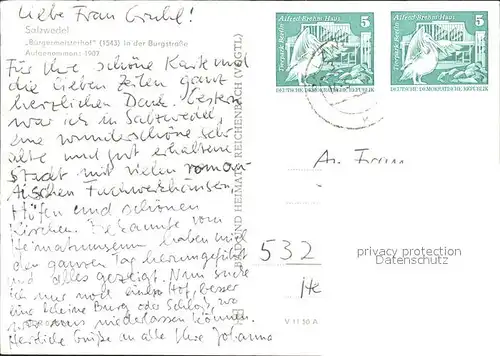 Liebe Frau
Salzwedel
„Bürgermeisterhof" (1543) in der Burgstraße
Aufgenommen: 1907
Für Ihre schöne Karte und
die lieben Zeilen ganz
herzlichen Dank. Gestern
war ich in Salzwedel,
eine wunderschöne sehr
alte und gut erhaltene
Stadt mit vielen roman-
tischen Fachwerkhäusern,
Höfen und schönen
Kirchen. Bekannte vom
Heimatmuseum haben mich
den ganzen Tag herumgeführt
und alles gezeigt. Nun suche
ich nur noch einen Hof, besser
eine kleine Burg oder Schloß, wo
wir uns niederlassen können.
Herzliche Grüße an alle Ihre Johanna
BILD UND HEIMAT REICHENBACH (VOGTL)
Tierpark Berlin
Alfred-Brehm-Haus
5
DEUTSCHE DEMOKRATISCHE REPUBLIK
Tierpark Berlin
Alfred-Brehm-Haus
5
DEUTSCHE DEMOKRATISCHE REPUBLIK
An Frau
532
privacy protection
Datenschutz
V 11 50 A